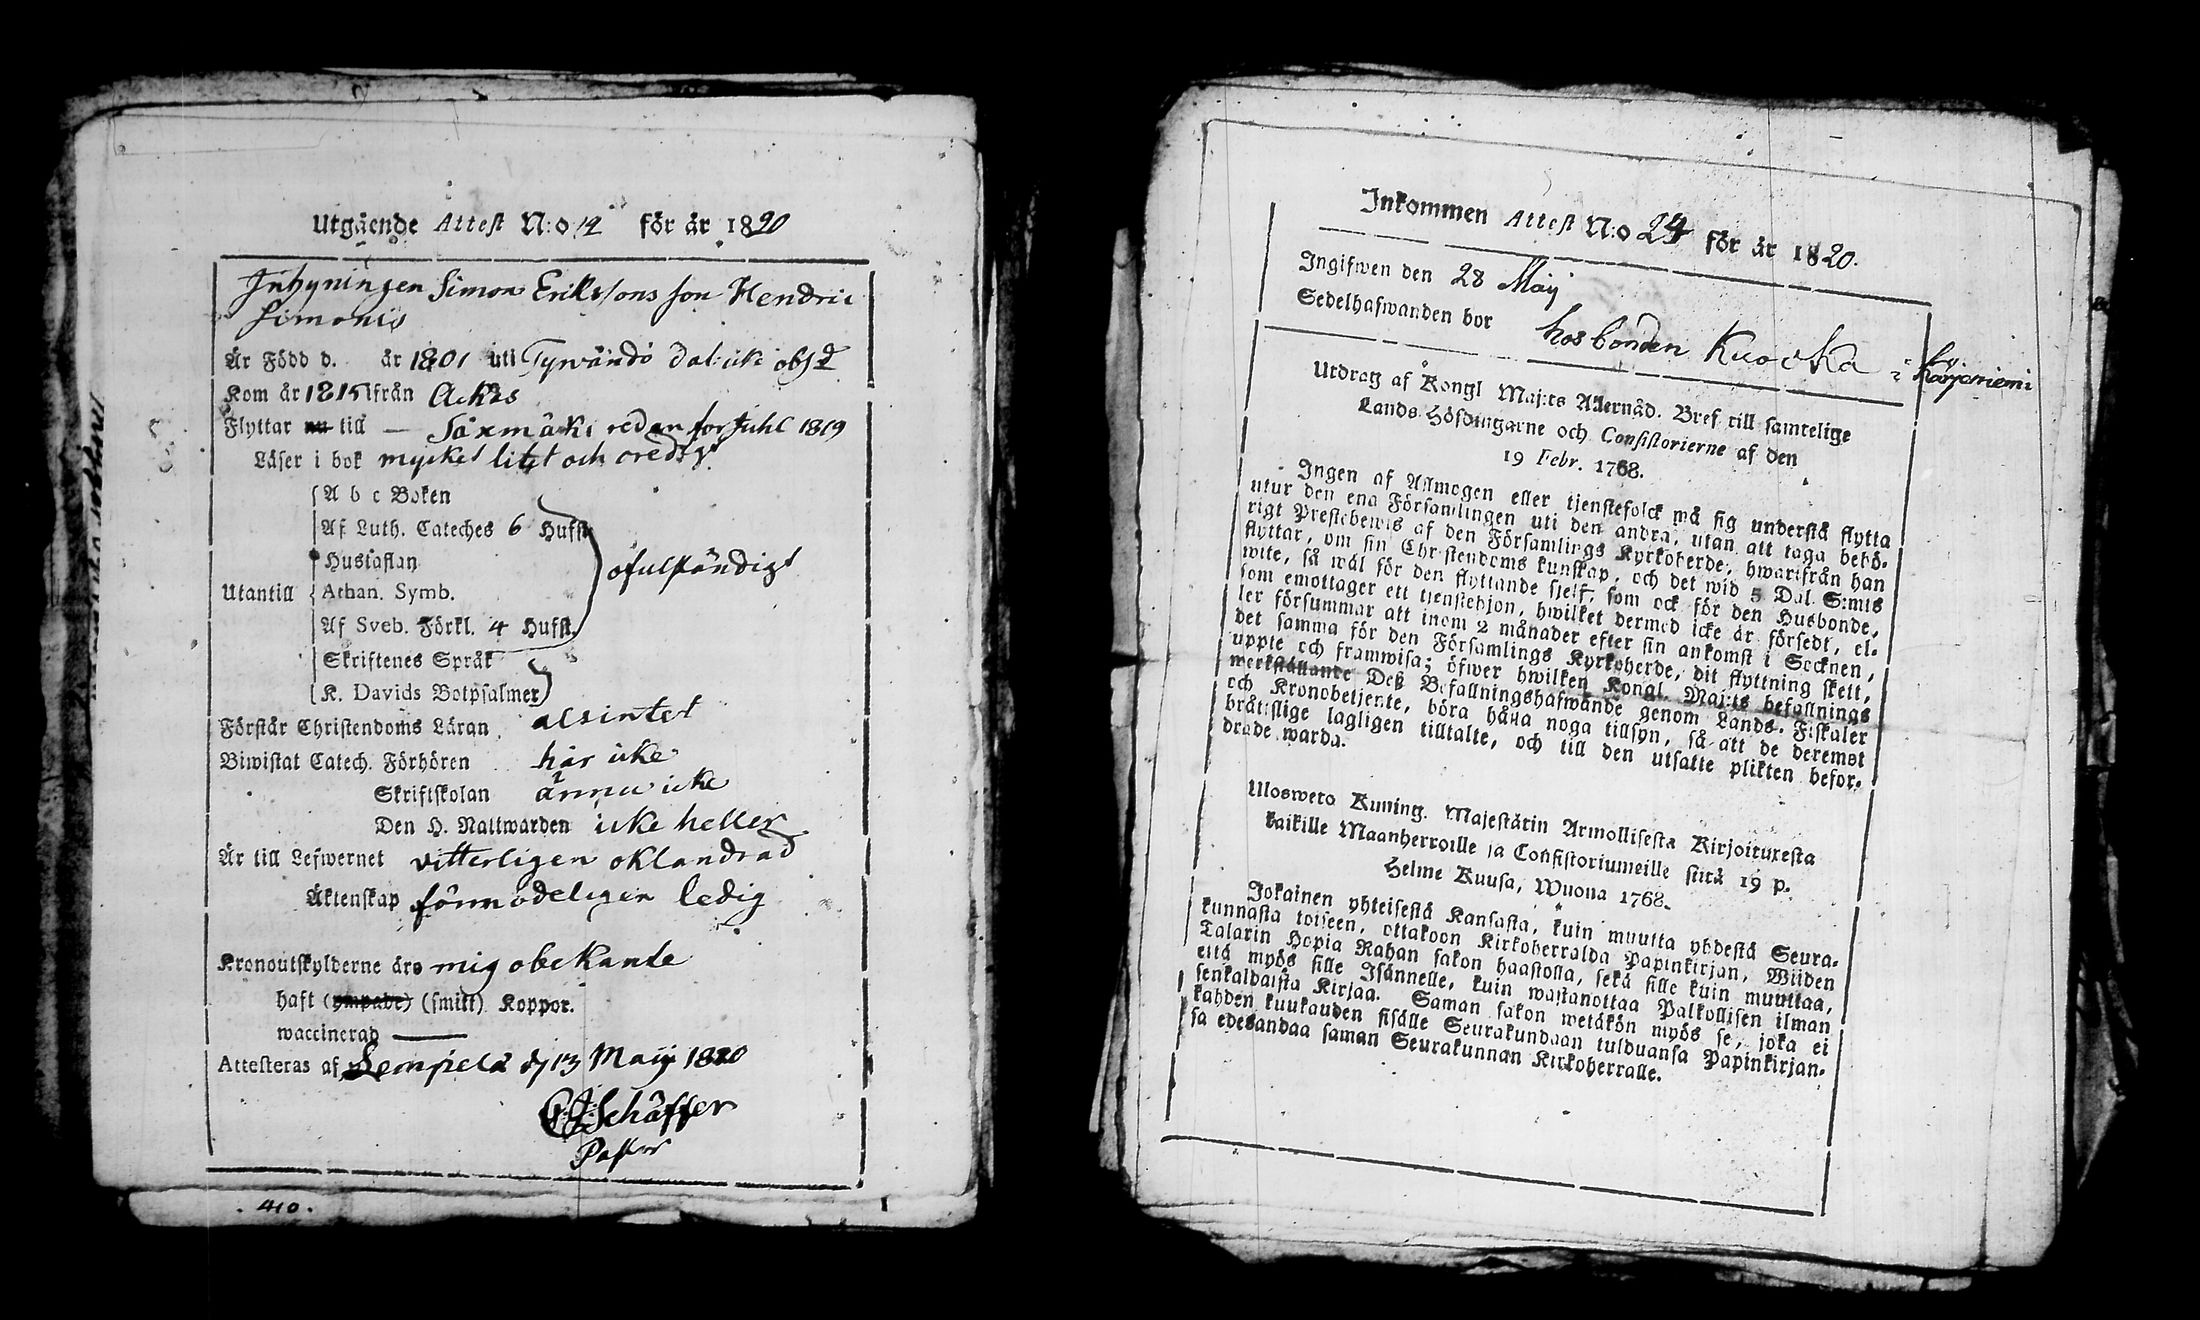 Utgående Attest N:o 12 för år 1820
Inhyningen Simon Erikssons son Hendric
Simonis
Är Född d. år 1801 uti Tyrvändö
Kom år 1815 ifrån Ackas
Flyttar nu till — Säxmäki redan för Juhl 1819
Läser i bok mycket litet och oredigt
A b c Boken
Af Luth. Cateches 6 Hufst.
Hustaflan
ofulständigt
Utantill Athan. Symb.
Af Sveb. Förkl. 4 Hufst.
Skriftenes Språk
K. Davids Botpsalmer
Förstår Christendoms Läran alsintet
Biwistat Catech. Förhören här icke
Skriftskolan ännu icke
Den H. Nattwarden icke heller
Är till Lefwernet vitterligen oklandrad
Äktenskap förmodeligen ledig
Kronoutskylderne äro mig obekante
haft (ympade) (smitt) Koppor.
waccinerad —
Attesteras af Lempelä d 13 Maij 1820
Schäffer
Pastor
410.
Inkommen Attest N:o 24 för år 1820.
Ingifwen den 28 Maij
Sedelhafwanden bor hos bonden Kuocka i Karjoniemi by
Utdrag af Kongl Maj:ts Allernåd. Bref till samtelige
Lands Höfdingarne och Consistorierne af den
19 Febr. 1768.
Ingen af Allmogen eller tjenstefolck må sig understå flytta
utur den ena Församlingen uti den andra, utan att taga behö-
rigt Prestebewis af den Församlings Kyrkoherde, hwarifrån han
flyttar, om sin Christendoms kunskap, och det wid 5 Dal. S:mts
wite, så wäl för den flyttande sjelf, som ock för den Husbonde,
som emottager ett tjenstehjon, hwilket dermed icke är försedt, el-
ler försummar att inom 2 månader efter sin ankomst i Socknen,
det samma för den Församlings Kyrkoherde, dit flyttning skett,
uppte och framwisa; öfwer hwilken Kongl. Maj:ts befallnings
werkställande Deß Befallningshafwande genom Lands-Fiskaler
och Kronobetjente, böra hålla noga tillsyn, så att de deremot
bråttslige lagligen tilltalte, och till den utsatte plikten befor-
drade warda.
Uloswero Kuning. Majestätin Armollisesta Kirjoituxesta
kaikille Maanherroille ja Consistoriumeille siitä 19 p.
Helme Kuusa, Wuona 1768.
Jokainen yhteisestä Kansasta, kuin muutta yhdestä Seura-
kunnasta toiseen, ottakoon Kirkoherralda Papinkirjan, Wiiden
Talarin Hopia Rahan sakon haastolla, sekä sille kuin muuttaa,
että myös sille Isännelle, kuin wastanottaa Palkollisen ilman
senkaldaista Kirjaa. Saman sakon wetäkön myös se, joka ei
kahden kuukauden sisälle Seurakundaan tulduansa Papinkirjan-
sa edesandaa saman Seurakunnan Kirkoherralle.